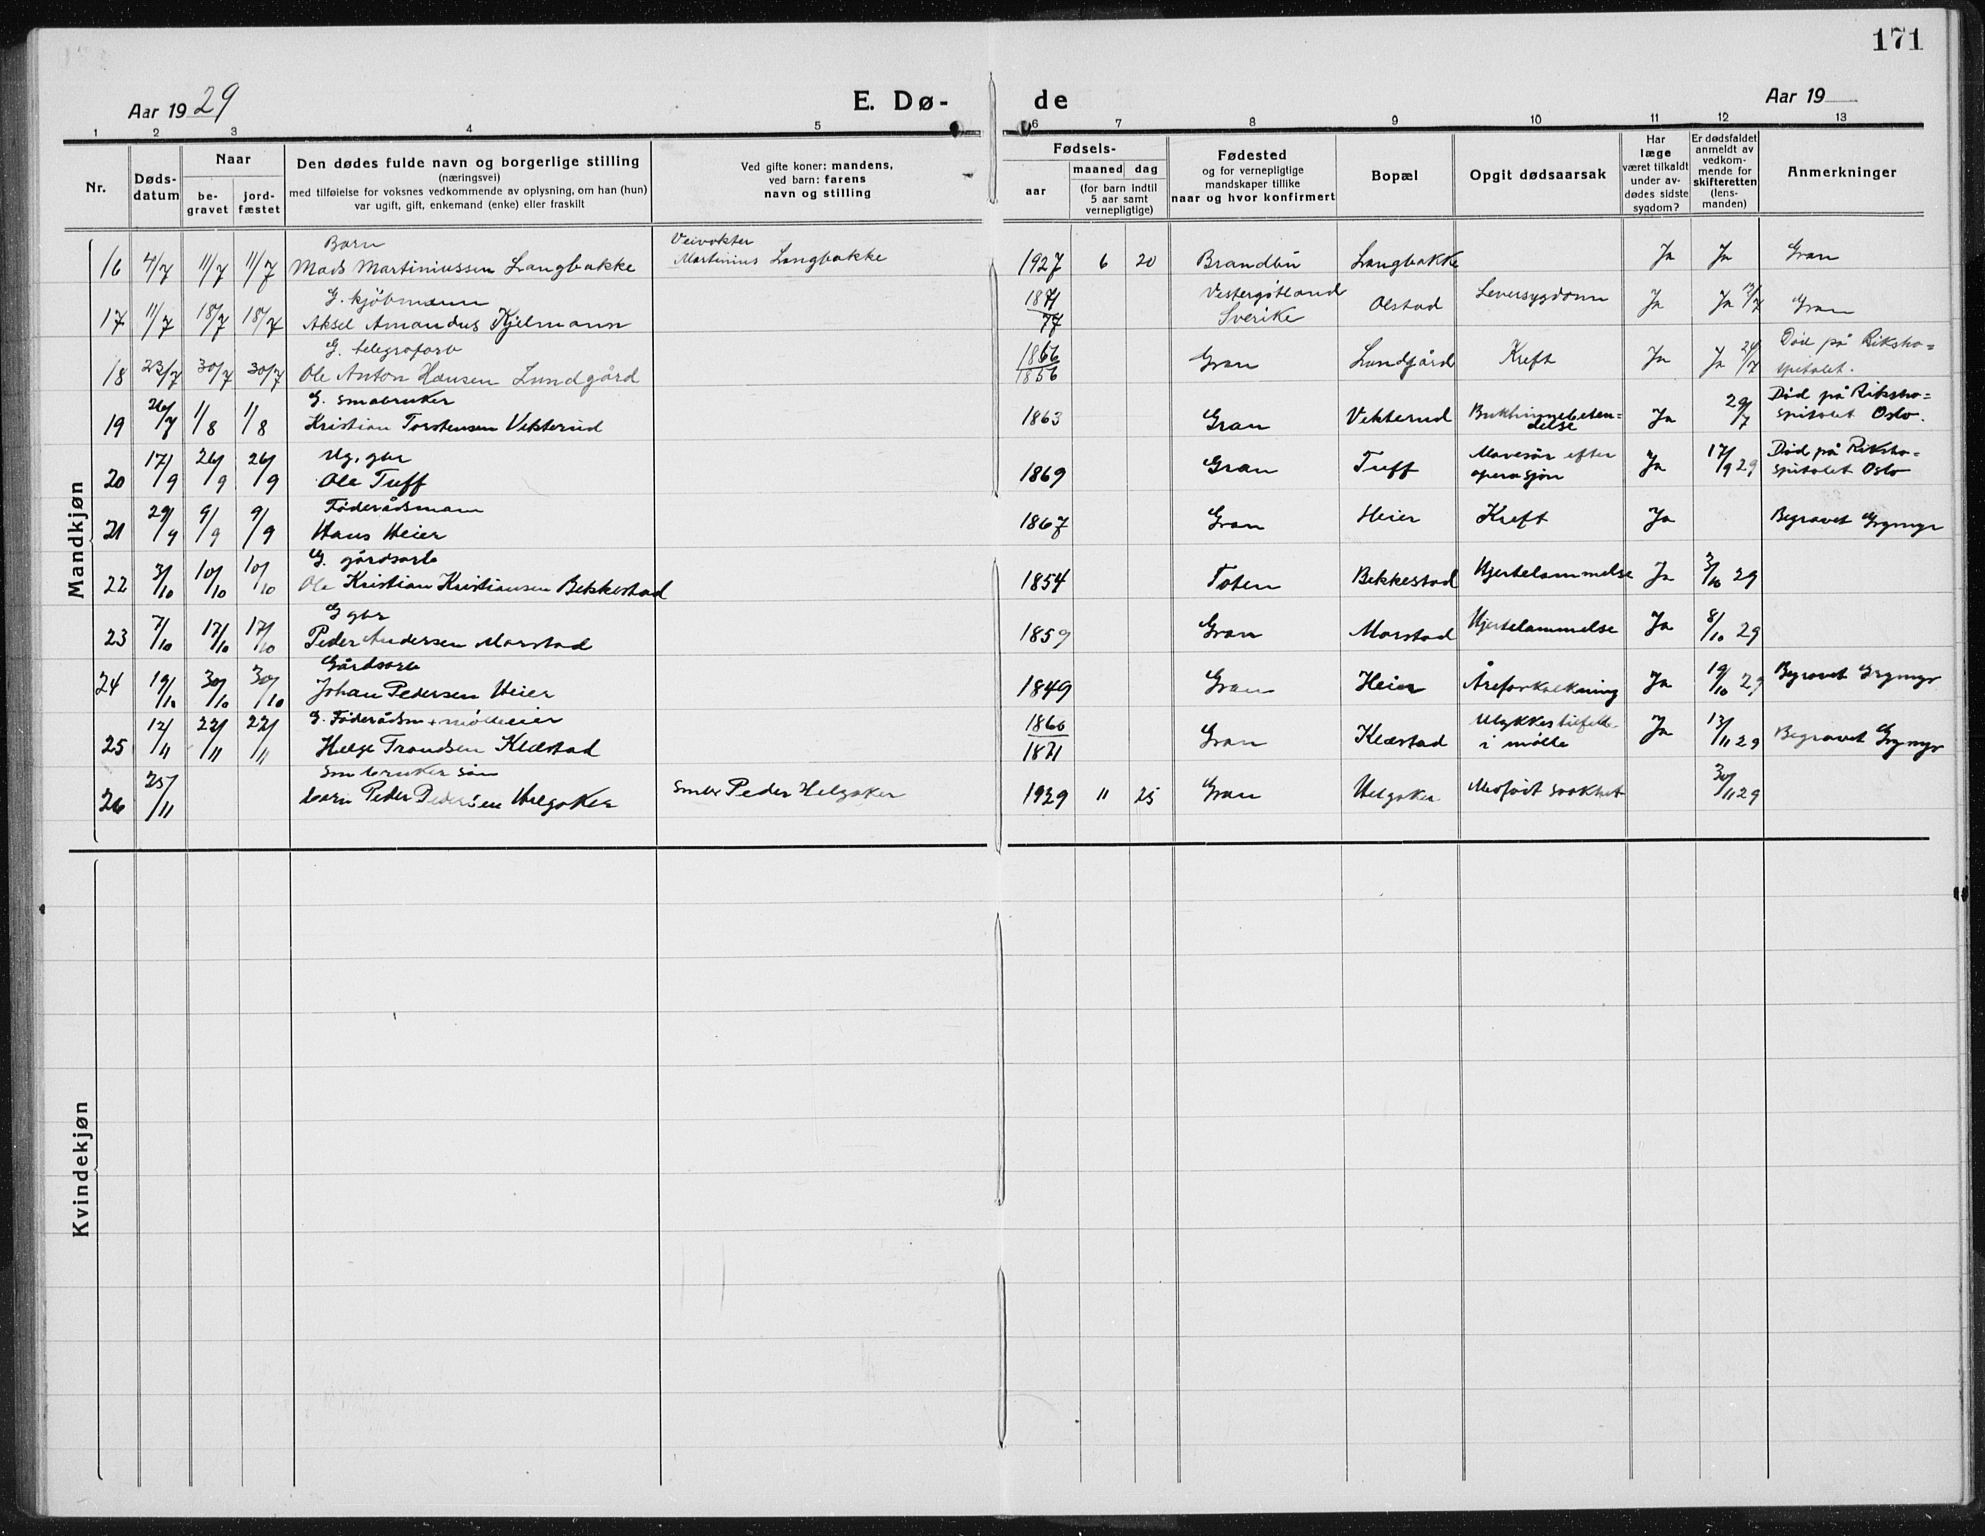 171
Aar 1929 E. Dø- de Aar 19
1 2 3 4 5 6 7 8 9 10 11 12 13
Nr.
Døds-
datum
Naar
be-
gravet
jord-
fæstet
Den dødes fulde navn og borgerlige stilling
(næringsvei)
med tilføielse for voksnes vedkommende av oplysning, om han (hun)
var ugift, gift, enkemand (enke) eller fraskilt
Ved gifte koner: mandens,
ved barn: farens
navn og stilling
Fødsels-
aar
maaned dag
(for barn indtil
5 aar samt
vernepligtige)
Fødested
og for vernepligtige
mandskaper tillike
naar og hvor konfirmert
Bopæl
Opgit dødsaarsak
Har
læge
været tilkaldt
under av-
dødes sidste
sygdom?
Er dødsfaldet
anmeldt av
vedkom-
mende for
skifteretten
(lens-
manden)
Anmerkninger
Mandkjøn
Barn Veivokter
16 4/7 11/7 11/7 Mads Martiniussen Langbakke Martinius Langbakke 1927 6 20 Brandbu Langbakke Ja Ja Gran
G. kjøbmann 1871 Vestergötland Leversygdom
17 11/7 18/7 18/7 Aksel Amandus Kjelmann 77 Sverike Olstad Ja Ja 12/7 Gran
G. telegrafarb 1866 Død på Riksho=
18 23/7 30/7 30/7 Ole Anton Hansen Lundgård 1856 Gran Lundgård Kreft Ja Ja 24/7 spitalet.
G. småbruker Død på Riksho=
19 26/7 1/8 1/8 Kristian Torstensen Vekterud 1863 Gran Vekterud Bukhinnebeten=
delse Ja 29/7 spitalet Oslo.
Ug. gbr Mavesår efter Død på Riksho=
20 17/9 26/9 26/9 Ole Tuff 1869 Gran Tuff operasjon Ja 17/9 29 spitalet Oslo
Føderådsmann
21 29/9 9/9 9/9 Hans Heier 1867 Gran Heier Kreft Ja Begravet Grymyr
G. gårdsarb
22 3/10 10/10 10/10 Ole Kristian Kristiansen Bekkestad 1854 Toten Bekkestad Hjertelammelse Ja 3/10 29
G gbr
23 7/10 17/10 17/10 Peder Andersen Morstad 1859 Gran Morstad Hjertelammelse Ja 8/10 29
Gårdsarb
24 19/10 30/10 30/10 Johan Pedersen Heier 1849 Gran Heier Åreforkalkning Ja 19/10 29 Begravet Grymyr
G. Føderådsm + mølleeier 1860 Ulykkestilfelle
25 12/11 22/11 22/11 Helge Trondsen Klæstad 1871 Gran Klæstad i mølle Ja 13/11 29 Begravet Grymyr
Småbruker søn
26 25/11 barn Peder Pedersen Helgaker Småbr Peder Helgaker 1929 11 25 Gran Helgaker Medfødt svakhet 30/11 29
Kvindekjøn